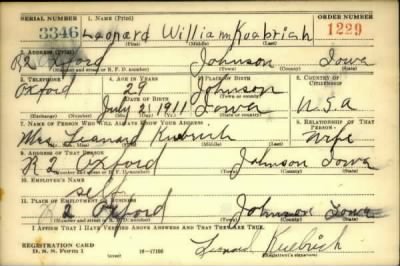 SERIAL NUMBER 1. NAME (Print) ORDER NUMBER
3346 Leonard William Kuebrich 1229
(First) (Middle) (Last)
2. ADDRESS (Print)
R2 Oxford Johnson Iowa
(Number and street or R. F. D. number) (Town) (County) (State)
3. TELEPHONE 4. AGE IN YEARS 5. PLACE OF BIRTH 6. COUNTRY OF CITIZENSHIP
Oxford 29 Johnson
DATE OF BIRTH (Town or county)
July 21 1911 Iowa U.S.A
(Exchange) (Number) (Mo.) (Day) (Yr.) (State or country)
7. NAME OF PERSON WHO WILL ALWAYS KNOW YOUR ADDRESS 8. RELATIONSHIP OF THAT PERSON
Mrs. Leonard Kuebrich Wife
(Mr., Mrs., Miss) (First) (Middle) (Last)
9. ADDRESS OF THAT PERSON
R 2 Oxford Johnson Iowa
(Number and street or R. F. D. number) (Town) (County) (State)
10. EMPLOYER'S NAME
Self
11. PLACE OF EMPLOYMENT OR BUSINESS
R 2 Oxford Johnson Iowa
(Number and street or R. F. D. number) (Town) (County) (State)
I AFFIRM THAT I HAVE VERIFIED ABOVE ANSWERS AND THAT THEY ARE TRUE.
REGISTRATION CARD
D. S. S. FORM 1 16—17105 Leonard Kuebrich